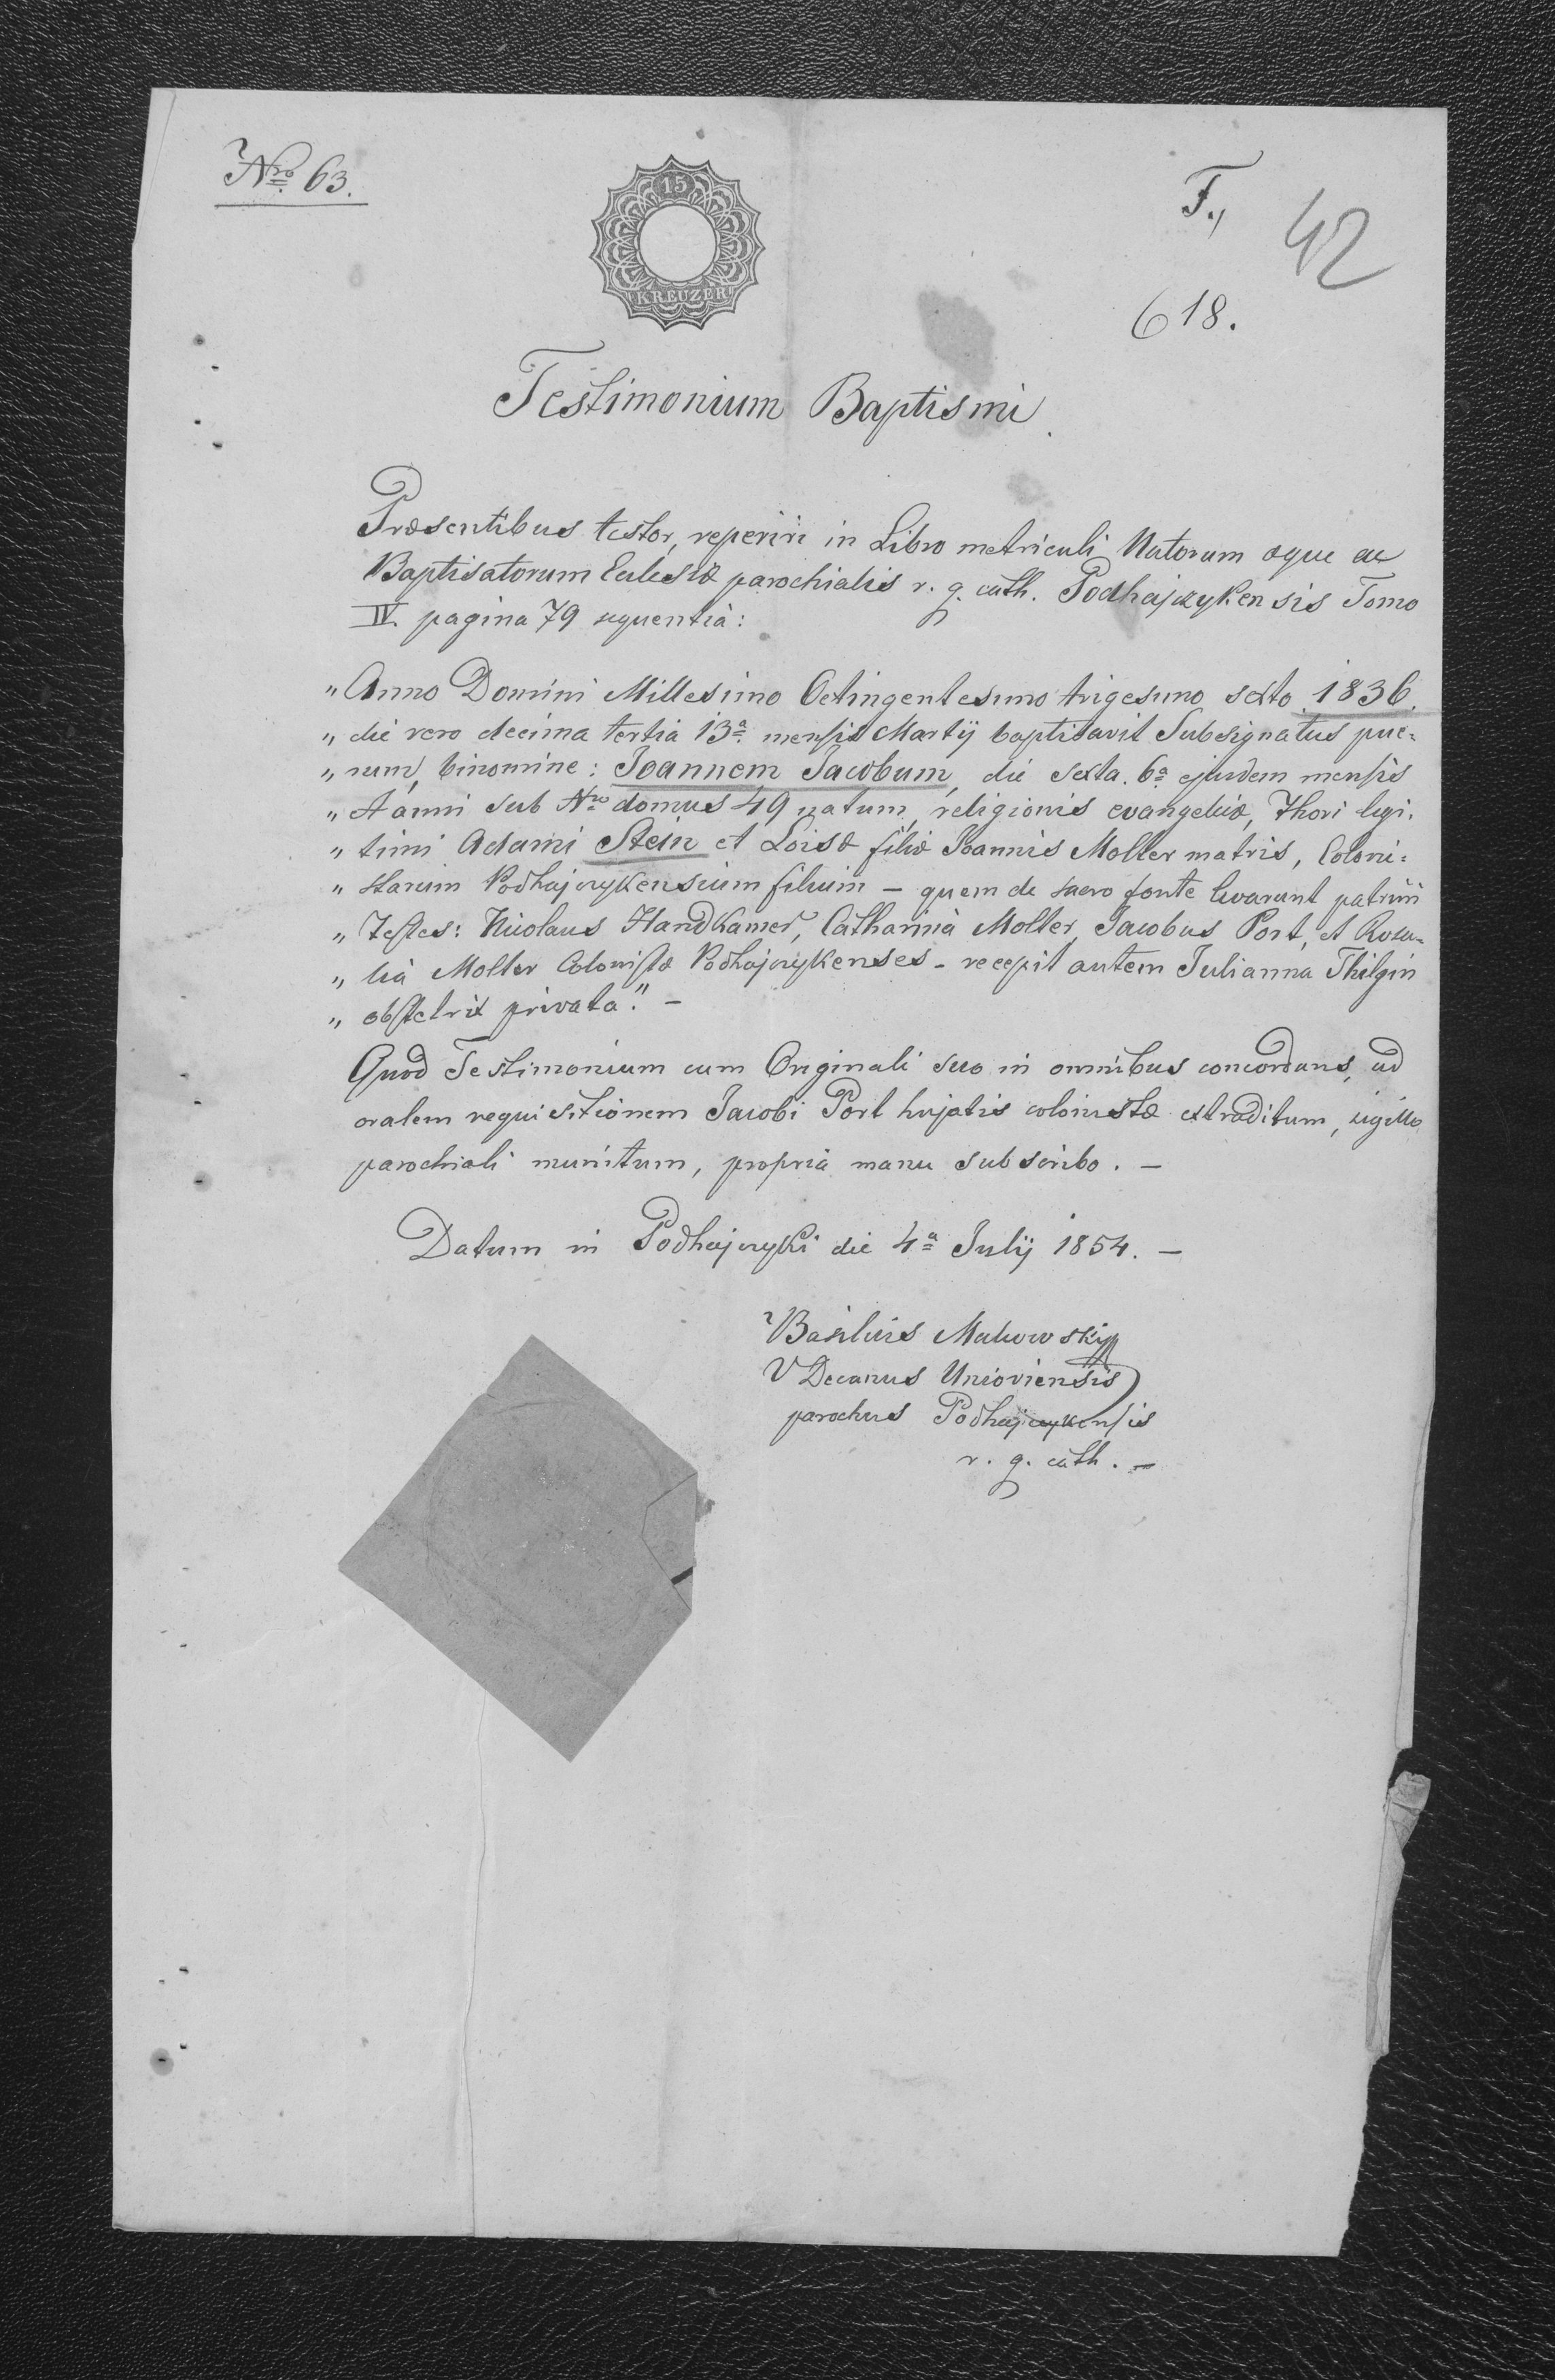 Nro 63.
F.,
42
15
KREUZER
618.
Testimonium Baptismi.
Præsentibus testor, reperiri in Libro metriculi Natorum æque ac
Baptisatorum Eclesiæ parochialis r. g. cath. Podhajczykensis Tomo
IV. pagina 79 sequentia:
„ Anno Domini Millesimo Octingentesimo trigesimo sexto 1836.
„ die vero decima tertia 13a mensis Martij baptisavit Subsignatus pue=
„ rum, binomine: Joannem Jacobum, die sexta. 6a ejusdem mensis
„ et anni sub Nro domus 49 natum, religionis evangelicæ, Thori legi.
„ timi Adami Stein et Loisæ filiæ Joannis Moller matris, Coloni=
„ starum Podhajczykensium filium – quem de sacro fonte levarunt patrini
„ Testes: Nicolaus Handkamer, Catharina Moller, Jacobus Port, et Rosa=
„ lia Moller Colonistæ Podhajczykenses – recepit autem Julianna Thilgin
„ obstetrix privata." –
Quod Testimonium cum Originali suo in omnibus concordans, ad
oralem requisitionem Jacobi Port hujatis colonistæ extraditum, sigillo
parochiali munitum, propria manu subscribo. –
Datum in Podhajczyki die 4a Julij 1854. –
Basilius Makowski
VDecanus Unioviensis
parochus Podhajczykensis
r. g. cath. –